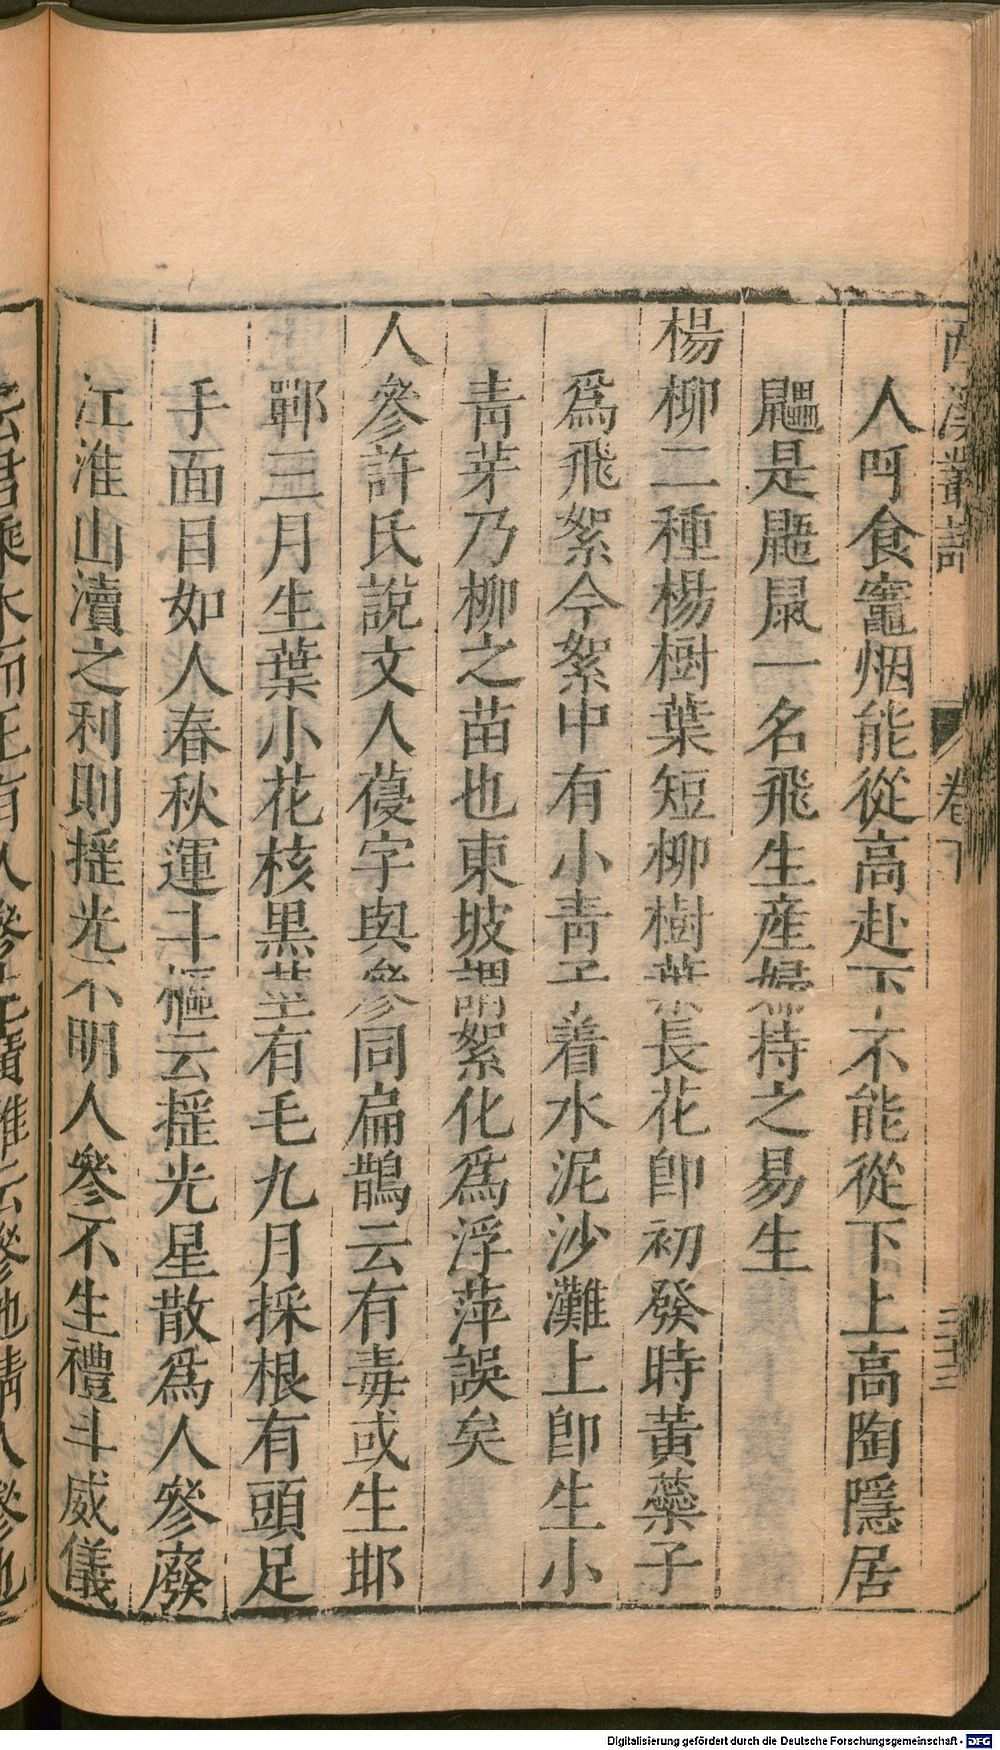 西溪叢語
卷下
三十三
人呼食竈烟能從高赴下不能從下上高陶隱居
鼺是鼯鼠一名飛生產婦持之易生
楊柳二種楊樹葉短柳樹葉長花卽初發時黃蘂子
爲飛絮今絮中有小靑子着水泥沙灘上卽生小
靑芽乃柳之苗也東坡謂絮化爲浮萍誤矣
人參許氏說文人葠字與參同扁鵲云有毒或生邯
鄲三月生葉小花核黑莖有毛九月採根有頭足
手面目如人春秋運斗樞云搖光星散爲人參廢
江淮山瀆之利則搖光不明人參不生禮斗威儀
云君乘木而王有人參生廣雅云參地精人參也
Digitalisierung gefördert durch die Deutsche Forschungsgemeinschaft - DFG